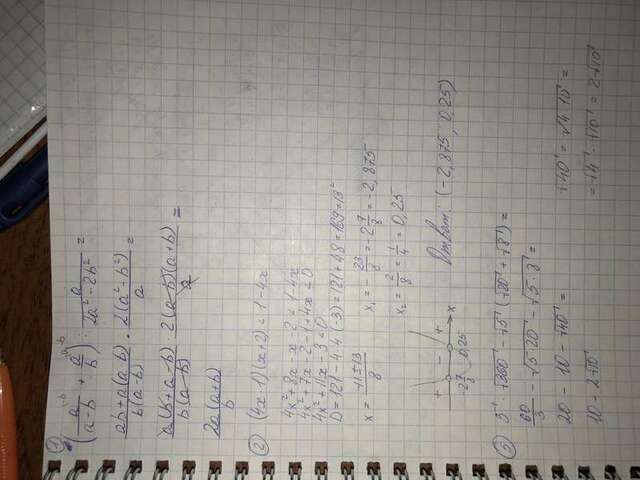 1
(a/(a-b) \b + a/b \a-b) : a/(2a²-2b²) =
(ab+a(a-b))/(b(a-b)) · 2(a²-b²)/a =
a(b+a-b)/(b(a-b)) · 2(a-b)(a+b)/a =
2a(a+b)/b
2 (4x-1)(x+2) < 1-4x
4x²+8x-x-2<1-4x
4x²+7x-2-1+4x<0
4x²+11x-3<0
D=121-4·4·(-3)=121+48=169=13²
x = (-11±13)/8 x₁ = -23/8 = -2 7/8 = -2,875
x₂ = 2/8 = 1/4 = 0,25
+ - + x
-2 7/8 0,25
Ответ: (-2,875; 0,25)
5 3⁻¹·√360 - √5 (√20 + √8) =
60/3 - √5·20 - √5·8 =
20 - 10 - √40 =
√40 = √4·10 =
10 - 2√10
= √4·√10 = 2√10